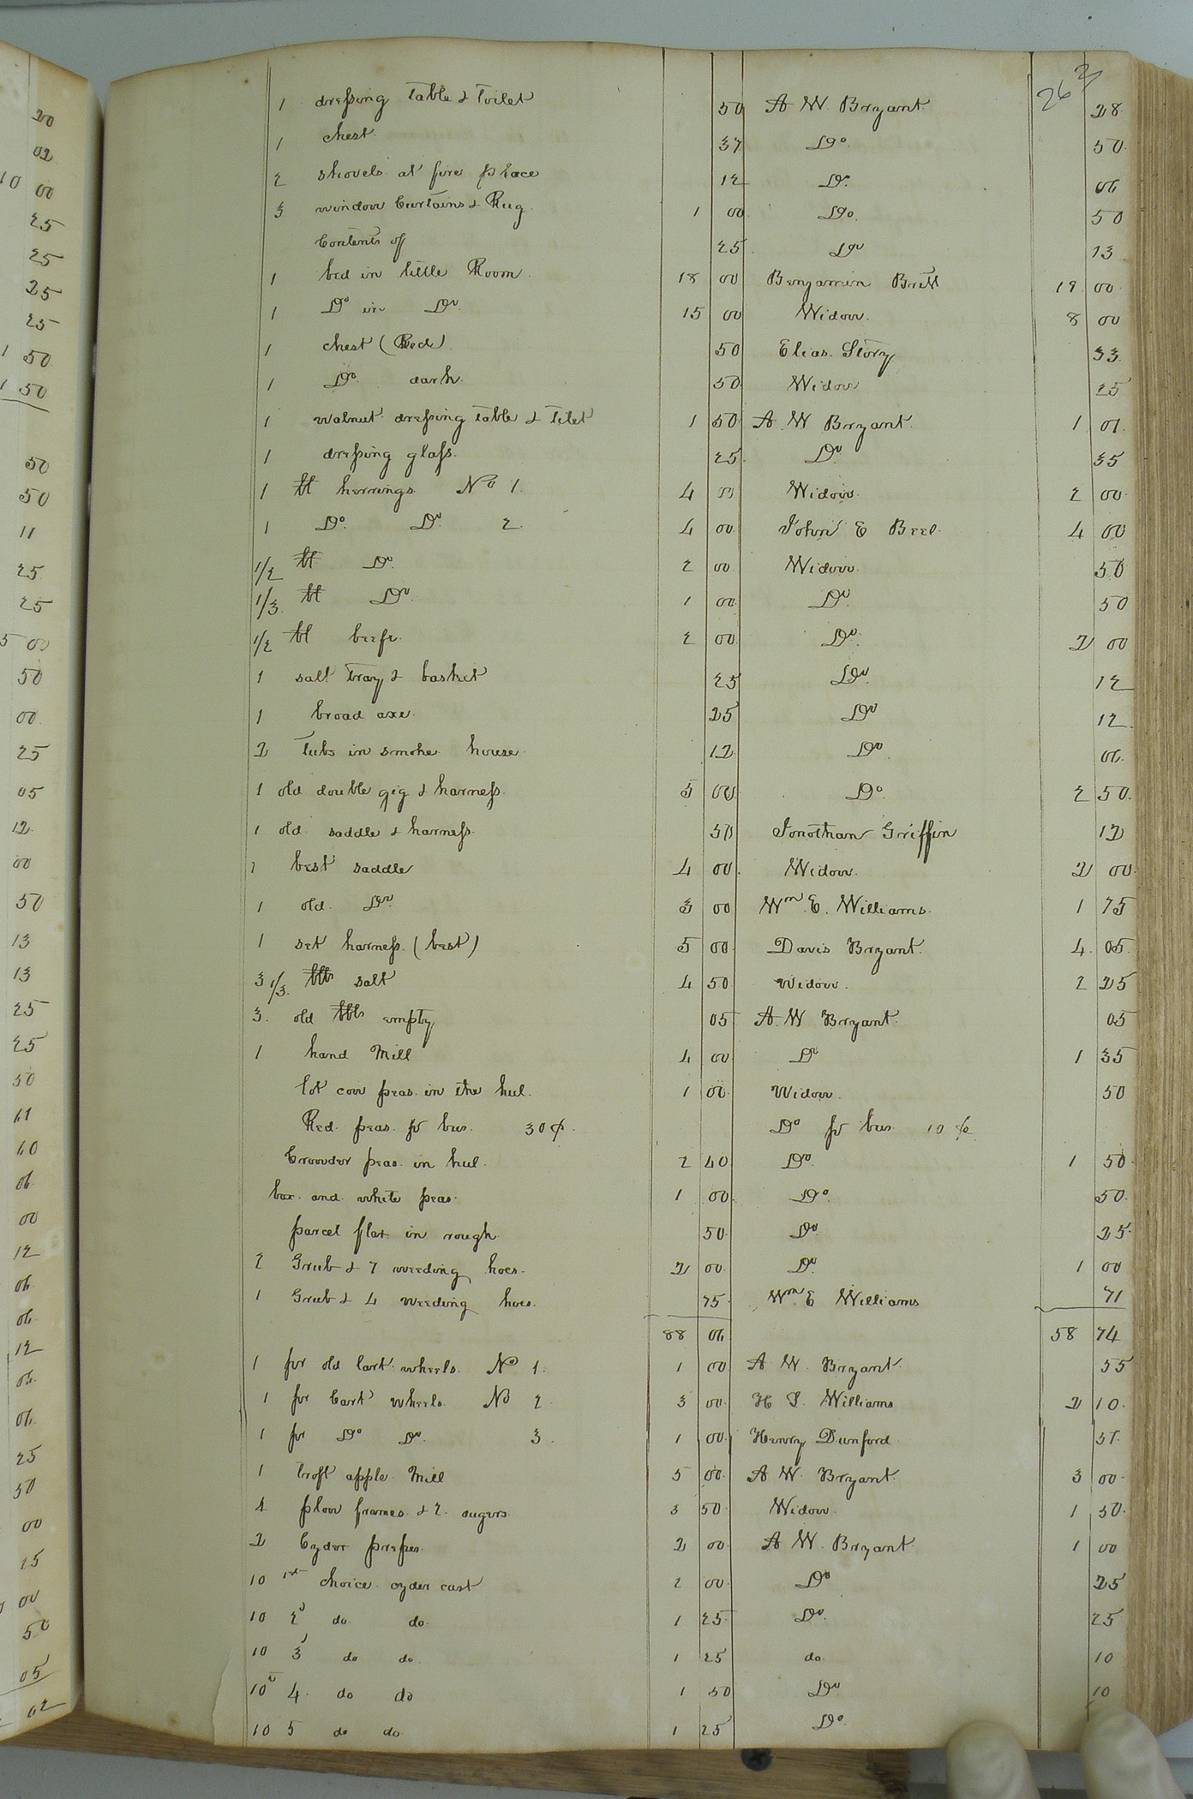 263
1 dressing table & Toilet 50 A W Bryant 28
1 chest 37 Do 50
2 shovels at fire place 12 Do 06
3 window Curtains & Rug 1 00 Do 50
Contents of 25 Do 13
1 bed in little Room 18 00 Benjamin Britt 19 00
1 Do in Do 15 00 Widow 8 00
1 chest (Red) 50 Elias Story 33
1 Do dark 50 Widow 25
1 walnut dressing table & tilet 1 50 A W Bryant 1 01
1 dressing glass 25 Do 35
1 bl herrings No 1 4 00 Widow 2 00
1 Do Do 2 4 00 John E Beel 4 00
1/2 bl Do 2 00 Widow 50
1/3 bl Do 1 00 Do 50
1/2 bl beefe 2 00 Do 2 00
1 salt tray & basket 25 Do 12
1 broad axe 25 Do 12
2 tubs in smoke house 12 Do 06
1 old double gig & harness 5 00 Do 2 50
1 old saddle & harness 50 Jonothan Griffin 12
1 best saddle 4 00 Widow 2 00
1 old Do 3 00 Wm E. Williams 1 75
1 set harness (best) 5 00 Davis Bryant 4 05
3 1/3 bbls salt 4 50 Widow 2 25
3 old bbls empty 05 A W Bryant 05
1 hand Mill 4 00 Do 1 35
lot cow peas in the hul 1 00 Widow 50
Red peas pr bus 30¢ Do pr bus 10 ¢
Crowder peas in hul 2 40 Do 1 50
box and white peas 1 00 Do 50
parcel flax in rough 50 Do 25
2 Grub & 7 weeding hoes 2 00 Do 1 00
1 Grub & 4 weeding hoes 75 Wm E Williams 71
88 06 58 74
1 pr old Cart wheels No 1 1 00 A W Bryant 55
1 pr Cart wheels No 2 3 00 H S Williams 2 10
1 pr Do Do 3 1 00 Henry Dunford 51
1 Troft apple Mill 5 00 A W Bryant 3 00
4 plow frames & 2 augurs 3 50 Widow 1 50
2 Cyder presses 2 00 A W Bryant 1 00
10 1st choice cyder cast 2 00 Do 25
10 2d do do 1 25 Do 25
10 3d do do 1 25 do 10
10 4 do do 1 50 Do 10
10 5 do do 1 25 Do
20
02
10 00
25
25
25
25
1 50
1 50
50
50
11
25
25
5 00
50
00
25
05
12
00
50
13
13
25
25
50
61
60
06
00
12
06
06
12
06
06
25
50
00
15
00
50
05
02